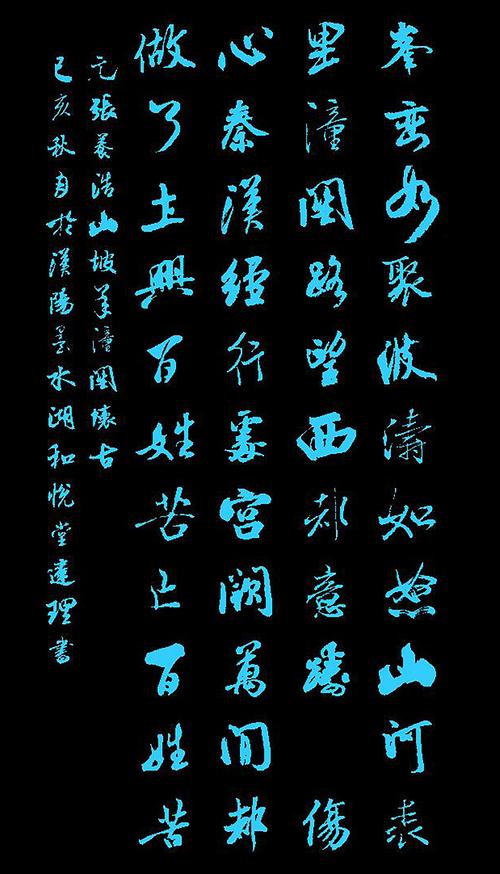 峯巒如聚波濤如怒山河表
里潼關路望西都意躊傷
心秦漢經行處宮闕萬間都
做了土興百姓苦亡百姓苦
元張養浩山坡羊潼關懷古
己亥秋月於漢陽墨水湖和悅堂理書